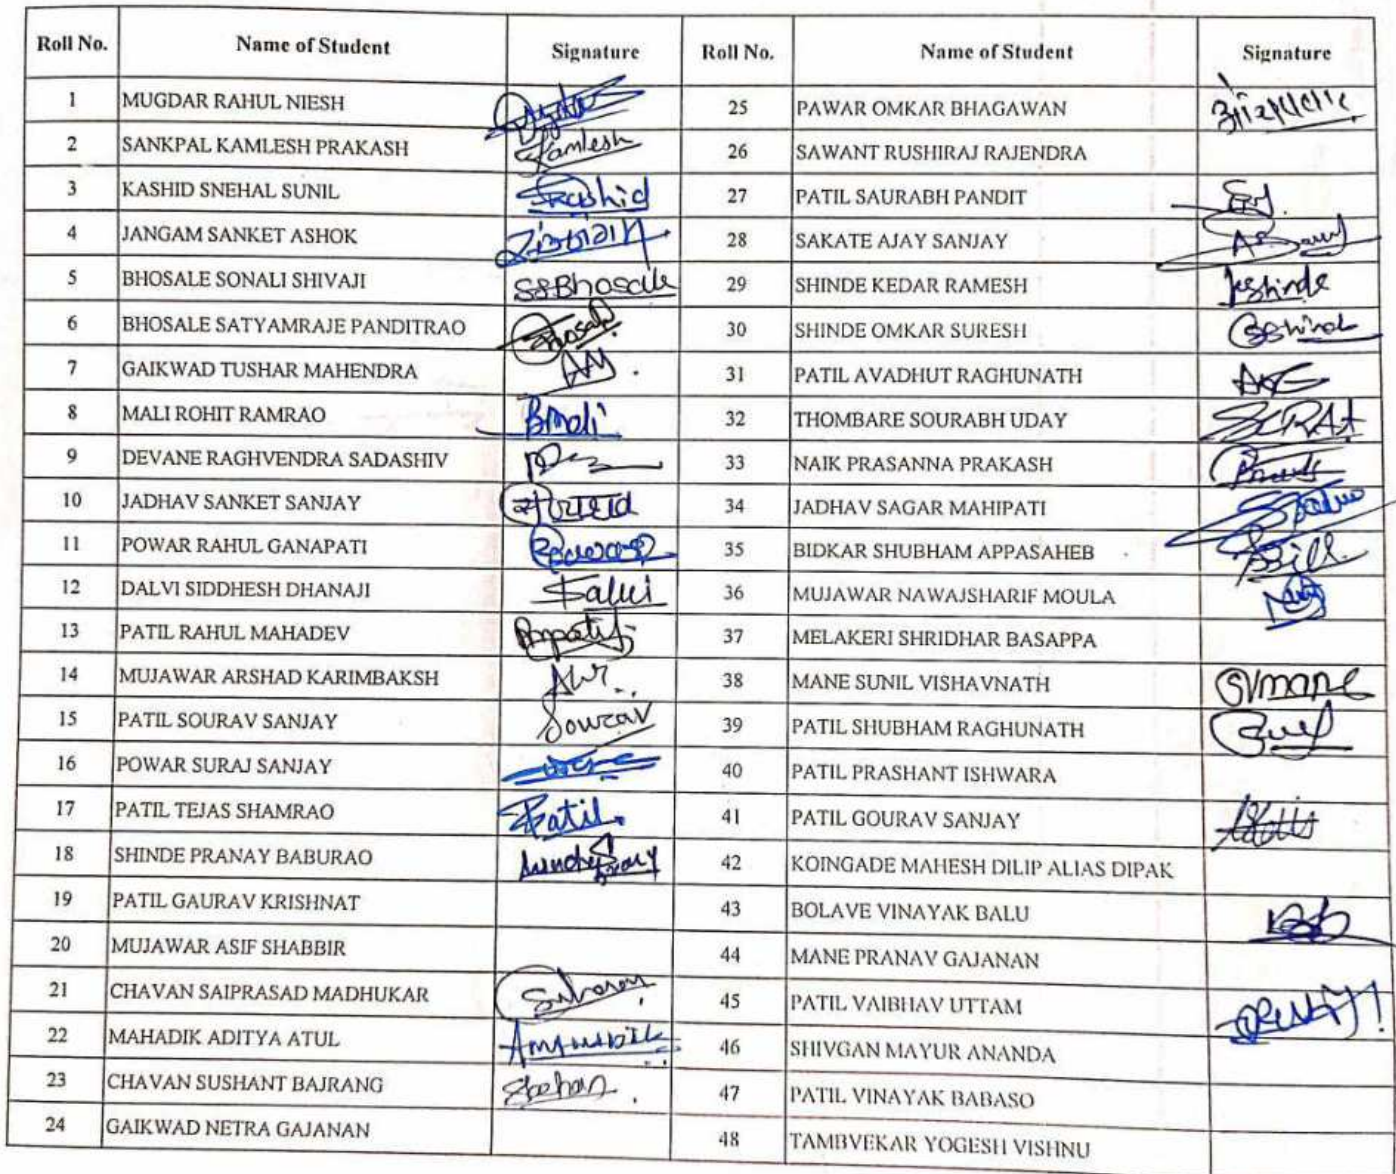 Roll No. Name of Student Signature Roll No. Name of Student Signature
1 MUGDAR RAHUL NIESH 25 PAWAR OMKAR BHAGAWAN
2 SANKPAL KAMLESH PRAKASH Kamlesh 26 SAWANT RUSHIRAJ RAJENDRA
3 KASHID SNEHAL SUNIL SKashid 27 PATIL SAURABH PANDIT
4 JANGAM SANKET ASHOK 28 SAKATE AJAY SANJAY
5 BHOSALE SONALI SHIVAJI SSBhosale 29 SHINDE KEDAR RAMESH
6 BHOSALE SATYAMRAJE PANDITRAO 30 SHINDE OMKAR SURESH
7 GAIKWAD TUSHAR MAHENDRA 31 PATIL AVADHUT RAGHUNATH
8 MALI ROHIT RAMRAO 32 THOMBARE SOURABH UDAY
9 DEVANE RAGHVENDRA SADASHIV 33 NAIK PRASANNA PRAKASH
10 JADHAV SANKET SANJAY 34 JADHAV SAGAR MAHIPATI
11 POWAR RAHUL GANAPATI 35 BIDKAR SHUBHAM APPASAHEB
12 DALVI SIDDHESH DHANAJI 36 MUJAWAR NAWAJSHARIF MOULA
13 PATIL RAHUL MAHADEV 37 MELAKERI SHRIDHAR BASAPPA
14 MUJAWAR ARSHAD KARIMBAKSH 38 MANE SUNIL VISHAVNATH SVmane
15 PATIL SOURAV SANJAY Sourav 39 PATIL SHUBHAM RAGHUNATH
16 POWAR SURAJ SANJAY 40 PATIL PRASHANT ISHWARA
17 PATIL TEJAS SHAMRAO Patil 41 PATIL GOURAV SANJAY
18 SHINDE PRANAY BABURAO 42 KOINGADE MAHESH DILIP ALIAS DIPAK
19 PATIL GAURAV KRISHNAT 43 BOLAVE VINAYAK BALU
20 MUJAWAR ASIF SHABBIR 44 MANE PRANAV GAJANAN
21 CHAVAN SAIPRASAD MADHUKAR 45 PATIL VAIBHAV UTTAM
22 MAHADIK ADITYA ATUL 46 SHIVGAN MAYUR ANANDA
23 CHAVAN SUSHANT BAJRANG 47 PATIL VINAYAK BABASO
24 GAIKWAD NETRA GAJANAN 48 TAMBVEKAR YOGESH VISHNU